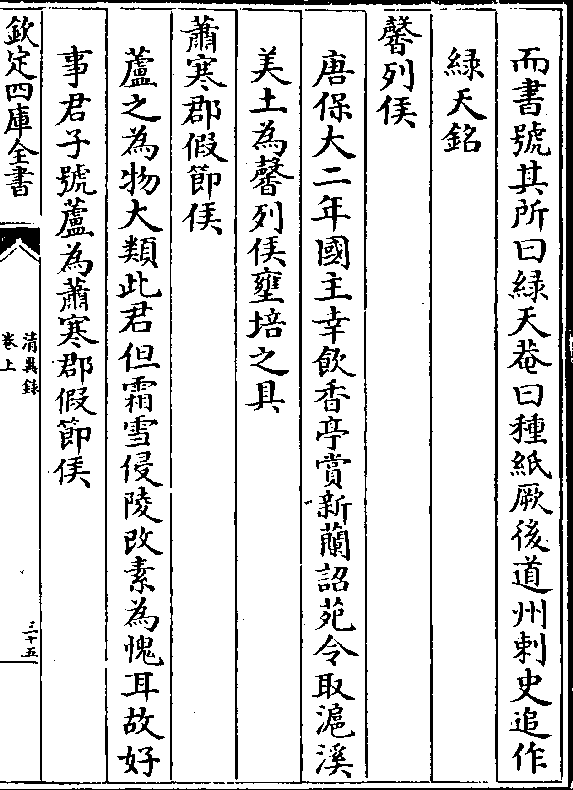 而書號其所曰緑天菴曰種紙厥後道州刺史追作
緑天銘
馨列侯
唐保大二年國主幸飲香亭賞新蘭詔苑令取滬溪
美土為馨列侯壅培之具
蕭寒郡假節侯
蘆之為物大類此君但霜雪侵陵改素為愧耳故好
事君子號蘆為蕭寒郡假節侯
欽定四庫全書
清異録
卷上
三十五